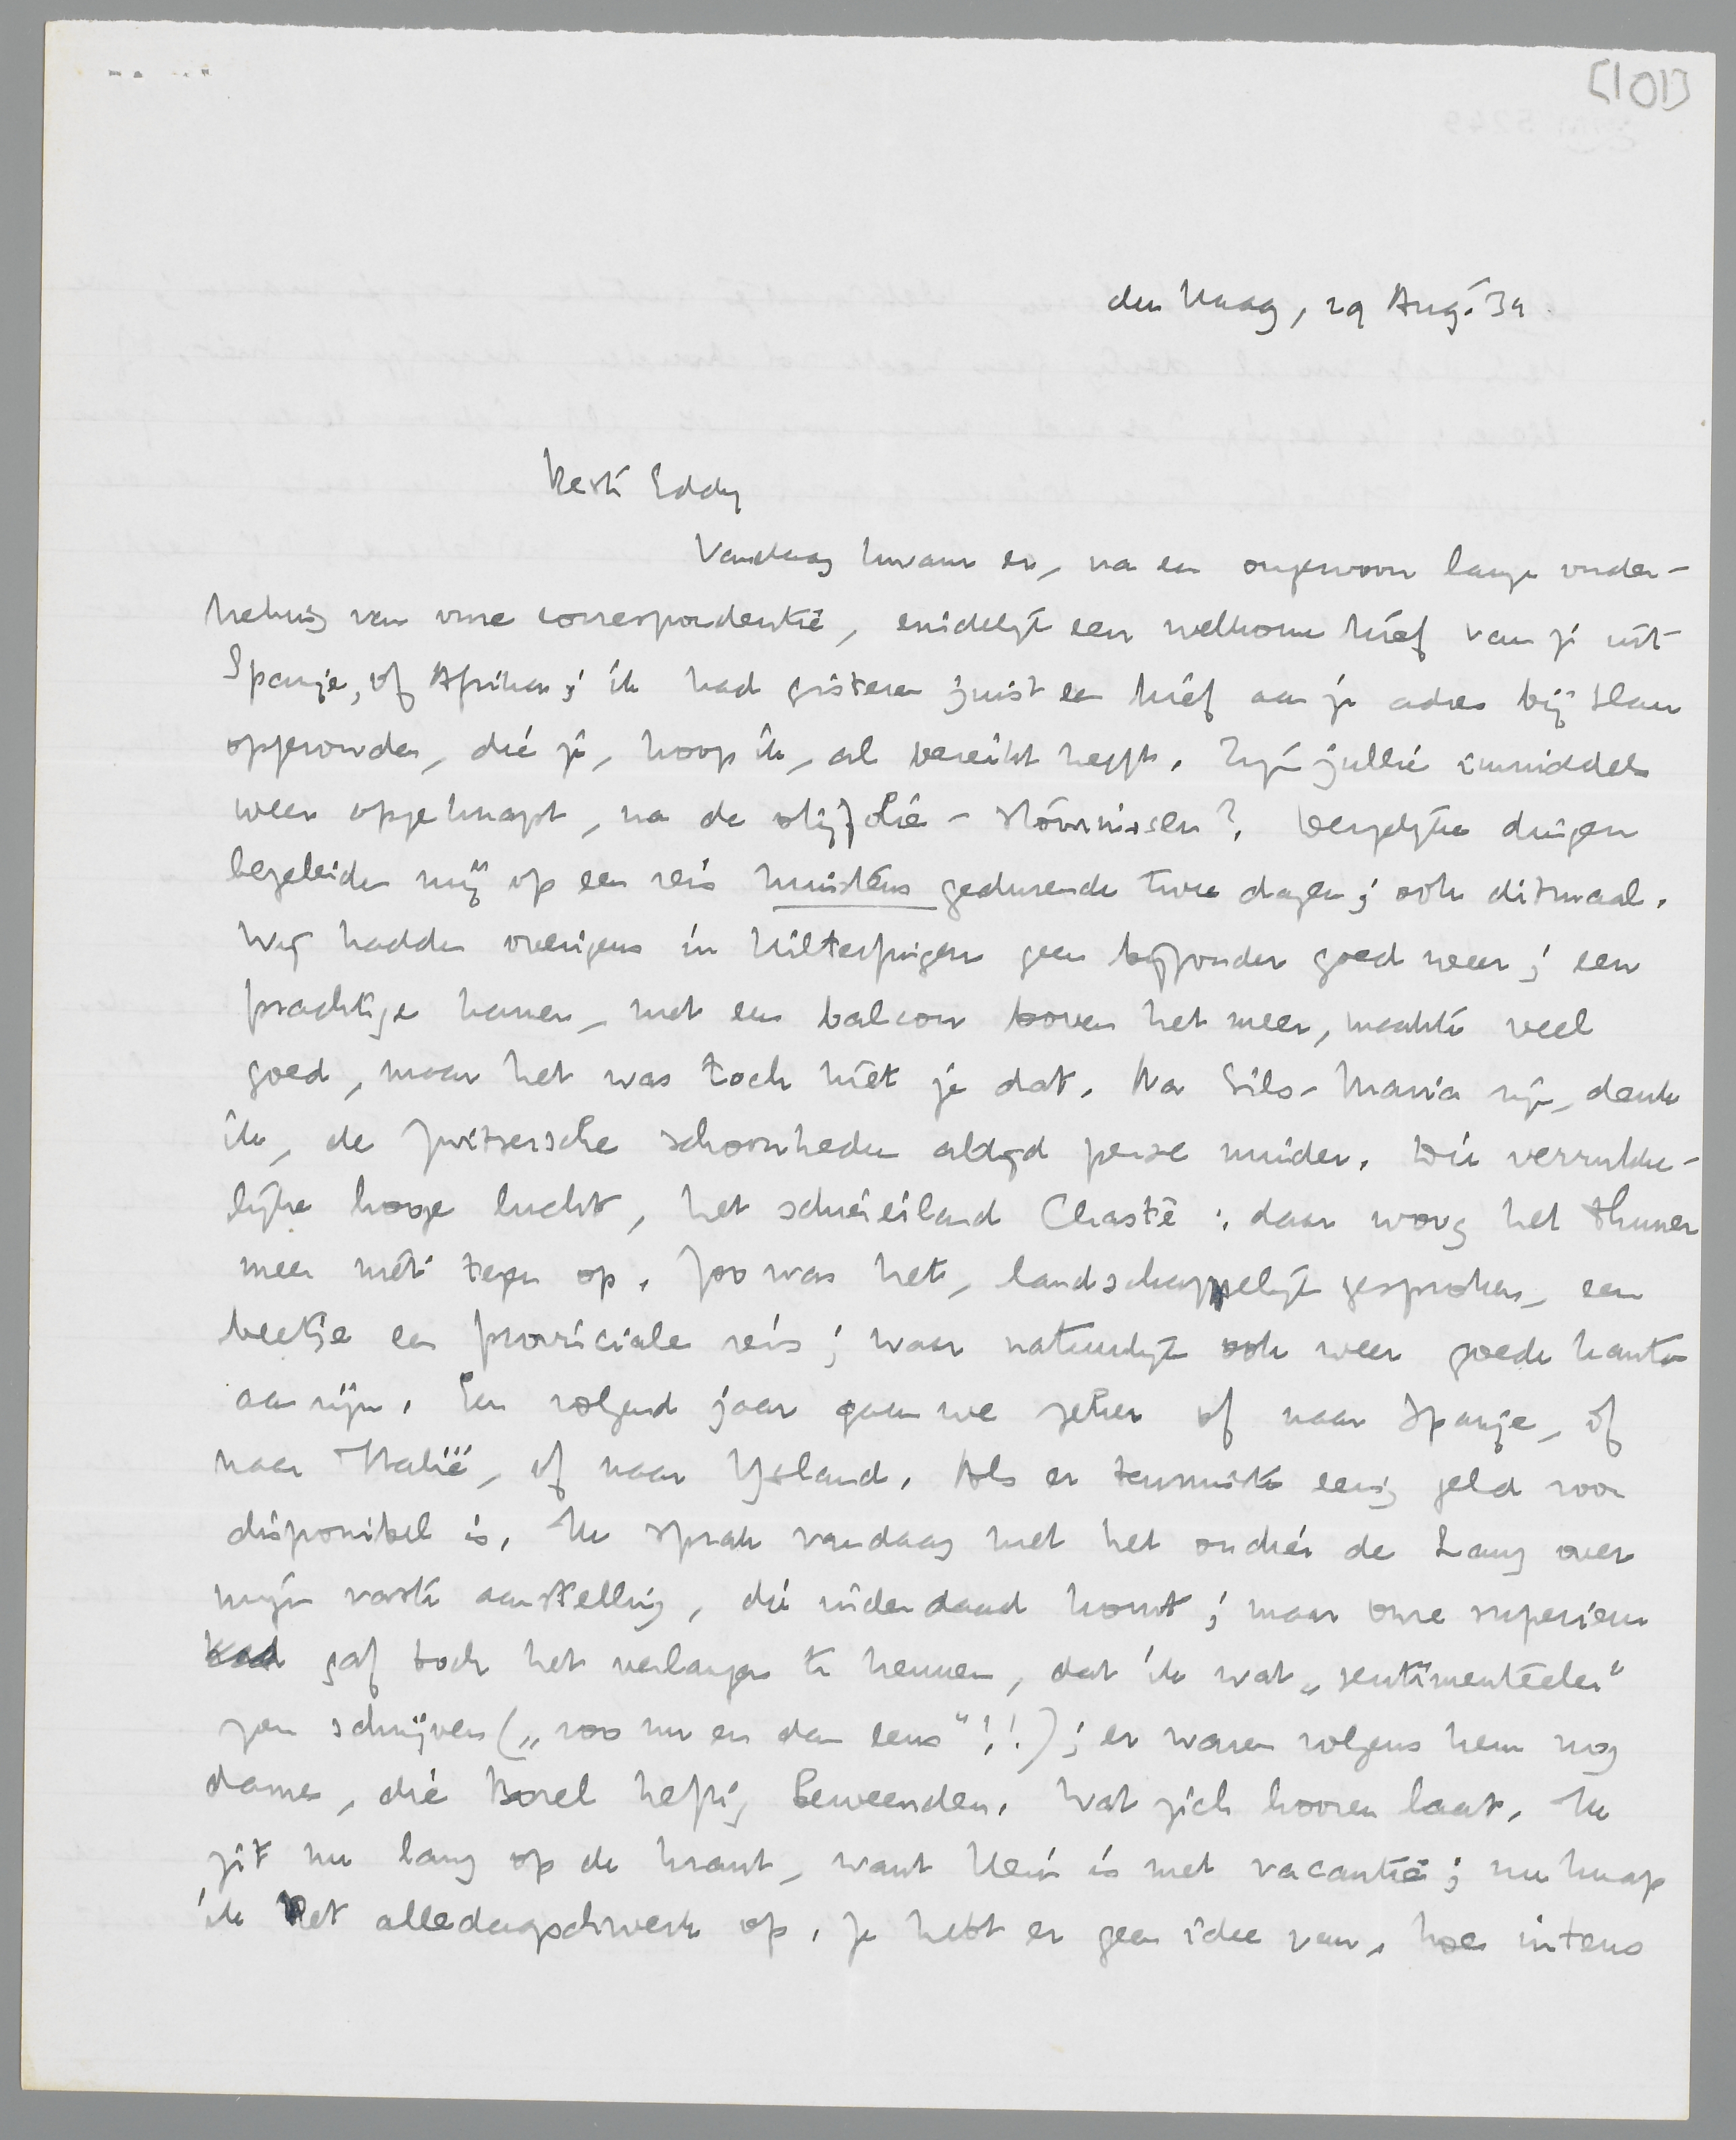 [101]
den Haag, 29 Aug. '34
Beste Eddy
Vandaag kwam er, na een ongewoon lange onder-
breking van onze correspondentie, eindelijk een welkome brief van je uit
Spanje, of Afrika; ik had gisteren juist een brief aan je adres bij
opgezonden, die je, hoop ik, al bereikt heeft. Zijn jullie inmiddels
weer opgeknapt, na de olijfolie-stoornissen? Dergelijke dingen
begeleiden mij op een reis minstens gedurende twee dagen; ook ditmaal.
Wij hadden overigens in Hilterfingen geen bijzonder goed weer; een
prachtige kamer, met een balcon boven het meer, maakte veel
goed, maar het was toch niet je dat. Na Sils-Maria zijn, denk
ik, de Zwitsersche schoonheden altijd per se minder. Die verrukke-
lijke hooge lucht, het schiereiland Chastè: daar woog het Thuner
meer niet tegen op. Zoo was het, landschappelijk gesproken, een
beetje een provinciale reis; waar natuurlijk ook weer goede kanten
aan zijn. En volgend jaar gaan we zeker of naar Spanje, of
naar Italië, of naar IJsland. Als er tenminste eenig geld voor
disponibel is. Ik sprak vandaag met het ondier de Lang over
mijn vaste aanstelling, die inderdaad komt; maar onze superieur
gaf toch het verlangen te kennen, dat ik wat „sentimenteeler"
zou schrijven („zoo nu en dan eens"!!); er waren volgens hem nog
dames, die Borel heftig beweenden. Wat zich hooren laat. Ik
zit nu lang op de krant, want Hein is met vacantie; nu knap
ik het alledagschwerk op. Je hebt er geen idee van, hoe intens